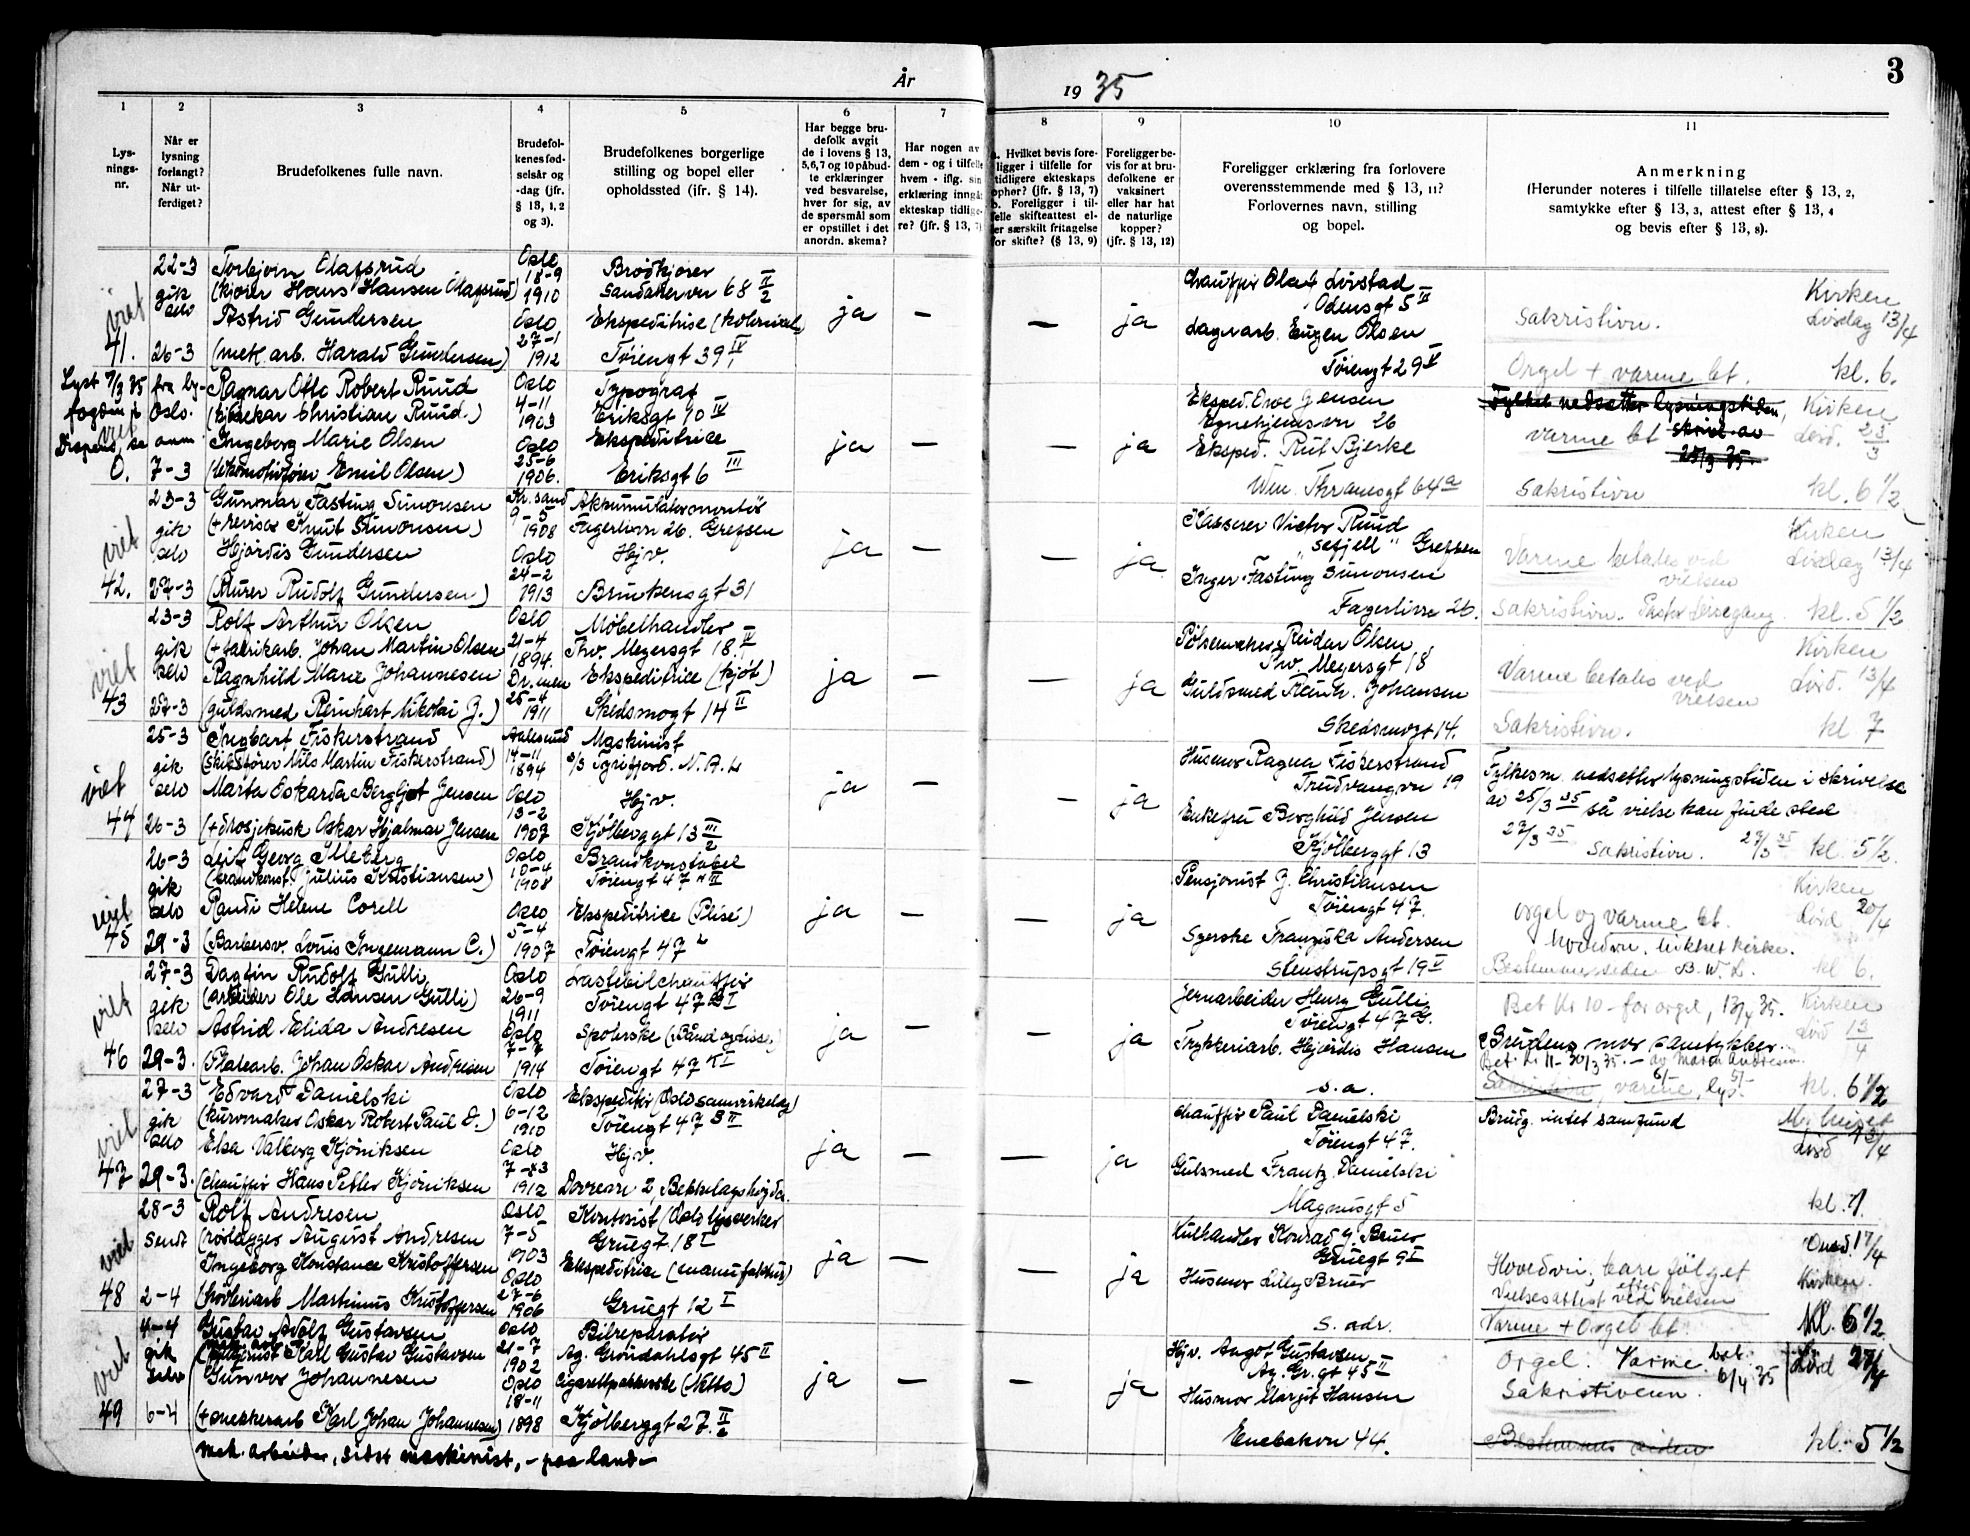 År 1935
3
1
2
3
4
5
6
7
8
9
10
11
Lys-
nings-
nr.
Når er
lysning
forlangt?
Når ut-
ferdiget?
Brudefolkenes fulle navn.
Brudefol-
kenes fød-
selsår og
-dag (jfr.
§ 13, 1, 2
og 3).
Brudefolkenes borgerlige
stilling og bopel eller
opholdssted (ifr. § 14).
Har begge bru-
defolk avgit
de i lovens § 13,
5,6,7 og 10 påbud-
te erklæringer
ved besvarelse,
hver for sig, av
de spørsmål som
er opstillet i det
anordn. skema?
Har nogen av
dem - og i tilfelle
hvem - iflg. sin
erklæring inngå
ekteskap tidlige-
re? (jfr. § 13,
a. Hvilket bevis fore-
ligger i tilfelle for
tidligere ekteskaps
ophør? (jfr. § 13, 7)
b. Foreligger i til-
felle skifteattest el-
er særskilt fritagelse
for skifte? (§ 13, 9)
Foreligger be-
vis for at bru-
defolkene er
vaksinert
eller har hat
de naturlige
kopper?
(jfr. § 13, 12)
Foreligger erklæring fra forlovere
overensstemmende med § 13, 11?
Forlovernes navn, stilling
og bopel.
Anmerkning
(Herunder noteres i tilfelle tillatelse efter § 13, 2,
samtykke efter § 13, 3, attest efter § 13, 4
og bevis efter § 13, 8).
viet
41.
22-3
gik
selv
26-3
Torbjørn Olafsrud
(kjører Hans Hansen Olafsrud)
Astrid Gundersen
(mek. arb. Harald Gundersen)
Oslo
18-9
1910
Oslo
27-1
1912
Brødkjører
Sandakervn 68 II/2
Ekspeditrise (kolonial)
Tøiengt 39 IV
ja
—
—
ja
Chauffør Olaf Løvstad
Odensgt 5 II
Lagerarb. Eugen Olsen
Tøiengt 29 V
Sakristivn.
Orgel + varme bet.
Kirken
Lørdag 13/4
kl. 6.
Lyst 7/3 35
viet
0.
fra by-
Oslo.
7-3
Ragnar Otto Robert Ruud
Christian Ruud.)
Ingeborg Marie Olsen
(lokomotivfører Emil Olsen)
Oslo
4-11
1903
Oslo
25-6
1906.
Typograf
Eriksgt 10 IV
Ekspeditrice
Eriksgt 6 III
ja
—
—
ja
Eksped. Jensen
Egnehjemsvn 26
Eksped. Rut Bjerke
Wm. Thranesgt 64a
Fylket nedsetter lysningstiden,
varme bet skriv. av
25/3 35.
Sakristivn
Kirken
Lørd. 23/3
kl. 6 1/2
viet
42.
23-3
gik
selv
27-3
Gunnar Fasting Simonsen
(+ revisor Knut Simonsen)
Hjørdis Gundersen
(Murer Rudolf Gundersen)
Kr.sand
9-5
1908
Oslo
24-2
1913
Akkumulatormontør
Fagerlivn 26. Grefsen
Hjv.
Brinkensgt 31
ja
—
—
ja
Kasserer Victor Ruud
"Sefjell" Grefsen
Inger Fasting Simonsen
Fagerlivn 26.
Varme betales ved
vielsen
Sakristivn.
Kirken
Lørdag 13/4
kl. 5 1/2
viet
43
23-3
gik
selv
27-3
Rolf Arthur Olsen
(+ fabrikarb. Johan Martin Olsen
Ragnhild Marie Johannesen
(guldsmed Reinhart Nikolai J.)
Oslo
21-4
1894.
Dr.men
25-4
1911
Møbelhandler
Thv. Meyersgt 18. IV
Ekspeditrice (kjøt)
Skedsmogt 14 II
ja
—
—
ja
Pølsemaker Reidar Olsen
Thv. Meyersgt 18
Guldsmed Reinh. Johansen
Skedsmogt 14.
Varme betales ved
vielsen
Sakristivn.
Kirken
Lørd. 13/4
kl 7
viet
44
25-3
gik
selv
26-3
Ingbart Fiskerstrand
(skibsfører Nils Martin Fiskerstrand)
Marta Oskarda Bergljot Jensen
(+ drosjekusk Oskar Hjalmar Jensen
Aalesund
14-11
1894
Oslo
13-2
1907
Maskinist
S/S Tyrifjord. N. A. L
Hjv.
Kjølberggt 13 III/2
ja
—
—
ja
Husmor Ragna Fiskerstrand
Trudvangvn 19
Enkefru Borghild Jensen
Kjølberggt 13
Fylkesm. nedsetter lysningstiden i skrivelse
av 25/3 35 så vielse kan finde sted
27/3 35
Sakristivn. 27/3 35 kl. 5 1/2.
viet
45
26-3
gik
selv
29-3
Leif Georg Illeberg
(brandkonst. Julius Kristiansen)
Randi Helene Corell
(Barbersv. Louis Ingemann C.)
Oslo
10-4
1908
Oslo
5-4
1907
Brandkonstabel
Tøiengt 47 III
Ekspeditrice (Plisé)
Tøiengt 47
ja
—
—
ja
Pensjonist J. Christiansen
Tøiengt 47.
Syerske Franziska Andersen
Stenstrupsgt 19 V
Orgel og varme bet.
Hovedvn. lukket kirke.
B. W. L.
Kirken
Lørd 20/4
kl 6.
viet
46
27-3
gik
selv
29-3.
Dagfin Rudolf Gulli
(arbeider Ole Hansen Gulli)
Astrid Elida Andresen
Johan Oskar Andresen
Oslo
26-9
1911
Oslo
7-7
1914
Lastebilchauffør
Tøiengt 47 I
Spolerske
Tøiengt 47 I
ja
—
—
ja
Jernarbeider Henry Gulli
Tøiengt 47 G.
Trykkeriarb. Hjørdis Hansen
s. a.
Bet Kr 10 - for orgel, 13/4 35.
Brudens mor samtykker.
Sakristivn, varme, lys.
Kirken
Lørd 13/4
kl. 6 1/2
viet
47
27-3
gik
selv
29-3.
Edvard Danielski
(kurvmaker Oskar Robert Paul D.)
Elsa Valborg Kjøniksen
(chauffør Hans Petter Kjøniksen
Oslo
6-12
1910
Oslo
7-3
1912
Ekspeditør (Oslo samvirkelag)
Tøiengt 47 B II
Hjv.
Dovrevn 2, Bekkelagshøgda.
ja
—
—
ja
Chauffør Paul Danielski
Tøiengt 47.
Gulsmed Frantz Danielski
Magnusgt 5
Brudg. intet samfund
Lørd 13/4
kl. 7.
viet
48
28-3
sendt
2-4
Rolf Andresen
(rørlegger August Andresen
Ingeborg Konstance Kristoffersen
(høvleriarb Martinius Kristoffersen
Oslo
7-5
1903
Oslo
27-6
1906
Kontorist (Oslo lysverker
Gruegt. 18 I
Ekspeditrice (manufaktur)
Gruegt 12 I
ja
—
—
ja
Kulhandler Konrad J. Bruer
Gruegt 9 I
Husmor Lilly Bruer
s. adr.
Hovedvn, bare følget
Vielsesattest efter vielsen
Varme + Orgel bet.
Onsd. 17/4
Kirken.
Kl. 6 1/2
viet
49
4-4
gik
selv
6-4
Gustav Adolf Gustavsen
Karl Gustav Gustavsen
Gunvor Johannesen
(+ snekkerarb Karl Johan Johannesen)
Oslo
21-7
1902
Oslo
18-11
1898
Bilreparatør
Ag. Grøndahlsgt 45 II
Cigarettpakkerske (Netto)
Kjølberggt 27. II/2
ja
—
—
ja
Hjv. Augot Gustavsen
Ag. Gr. gt 45 II
Husmor Margit Hansen
Enebakvn 44.
Orgel. Varme. bet.
6/4 35
Sakristiveien.
Lørd 27/4
kl. 5 1/2
mek. arbeider, sidst maskinist, - paa land -